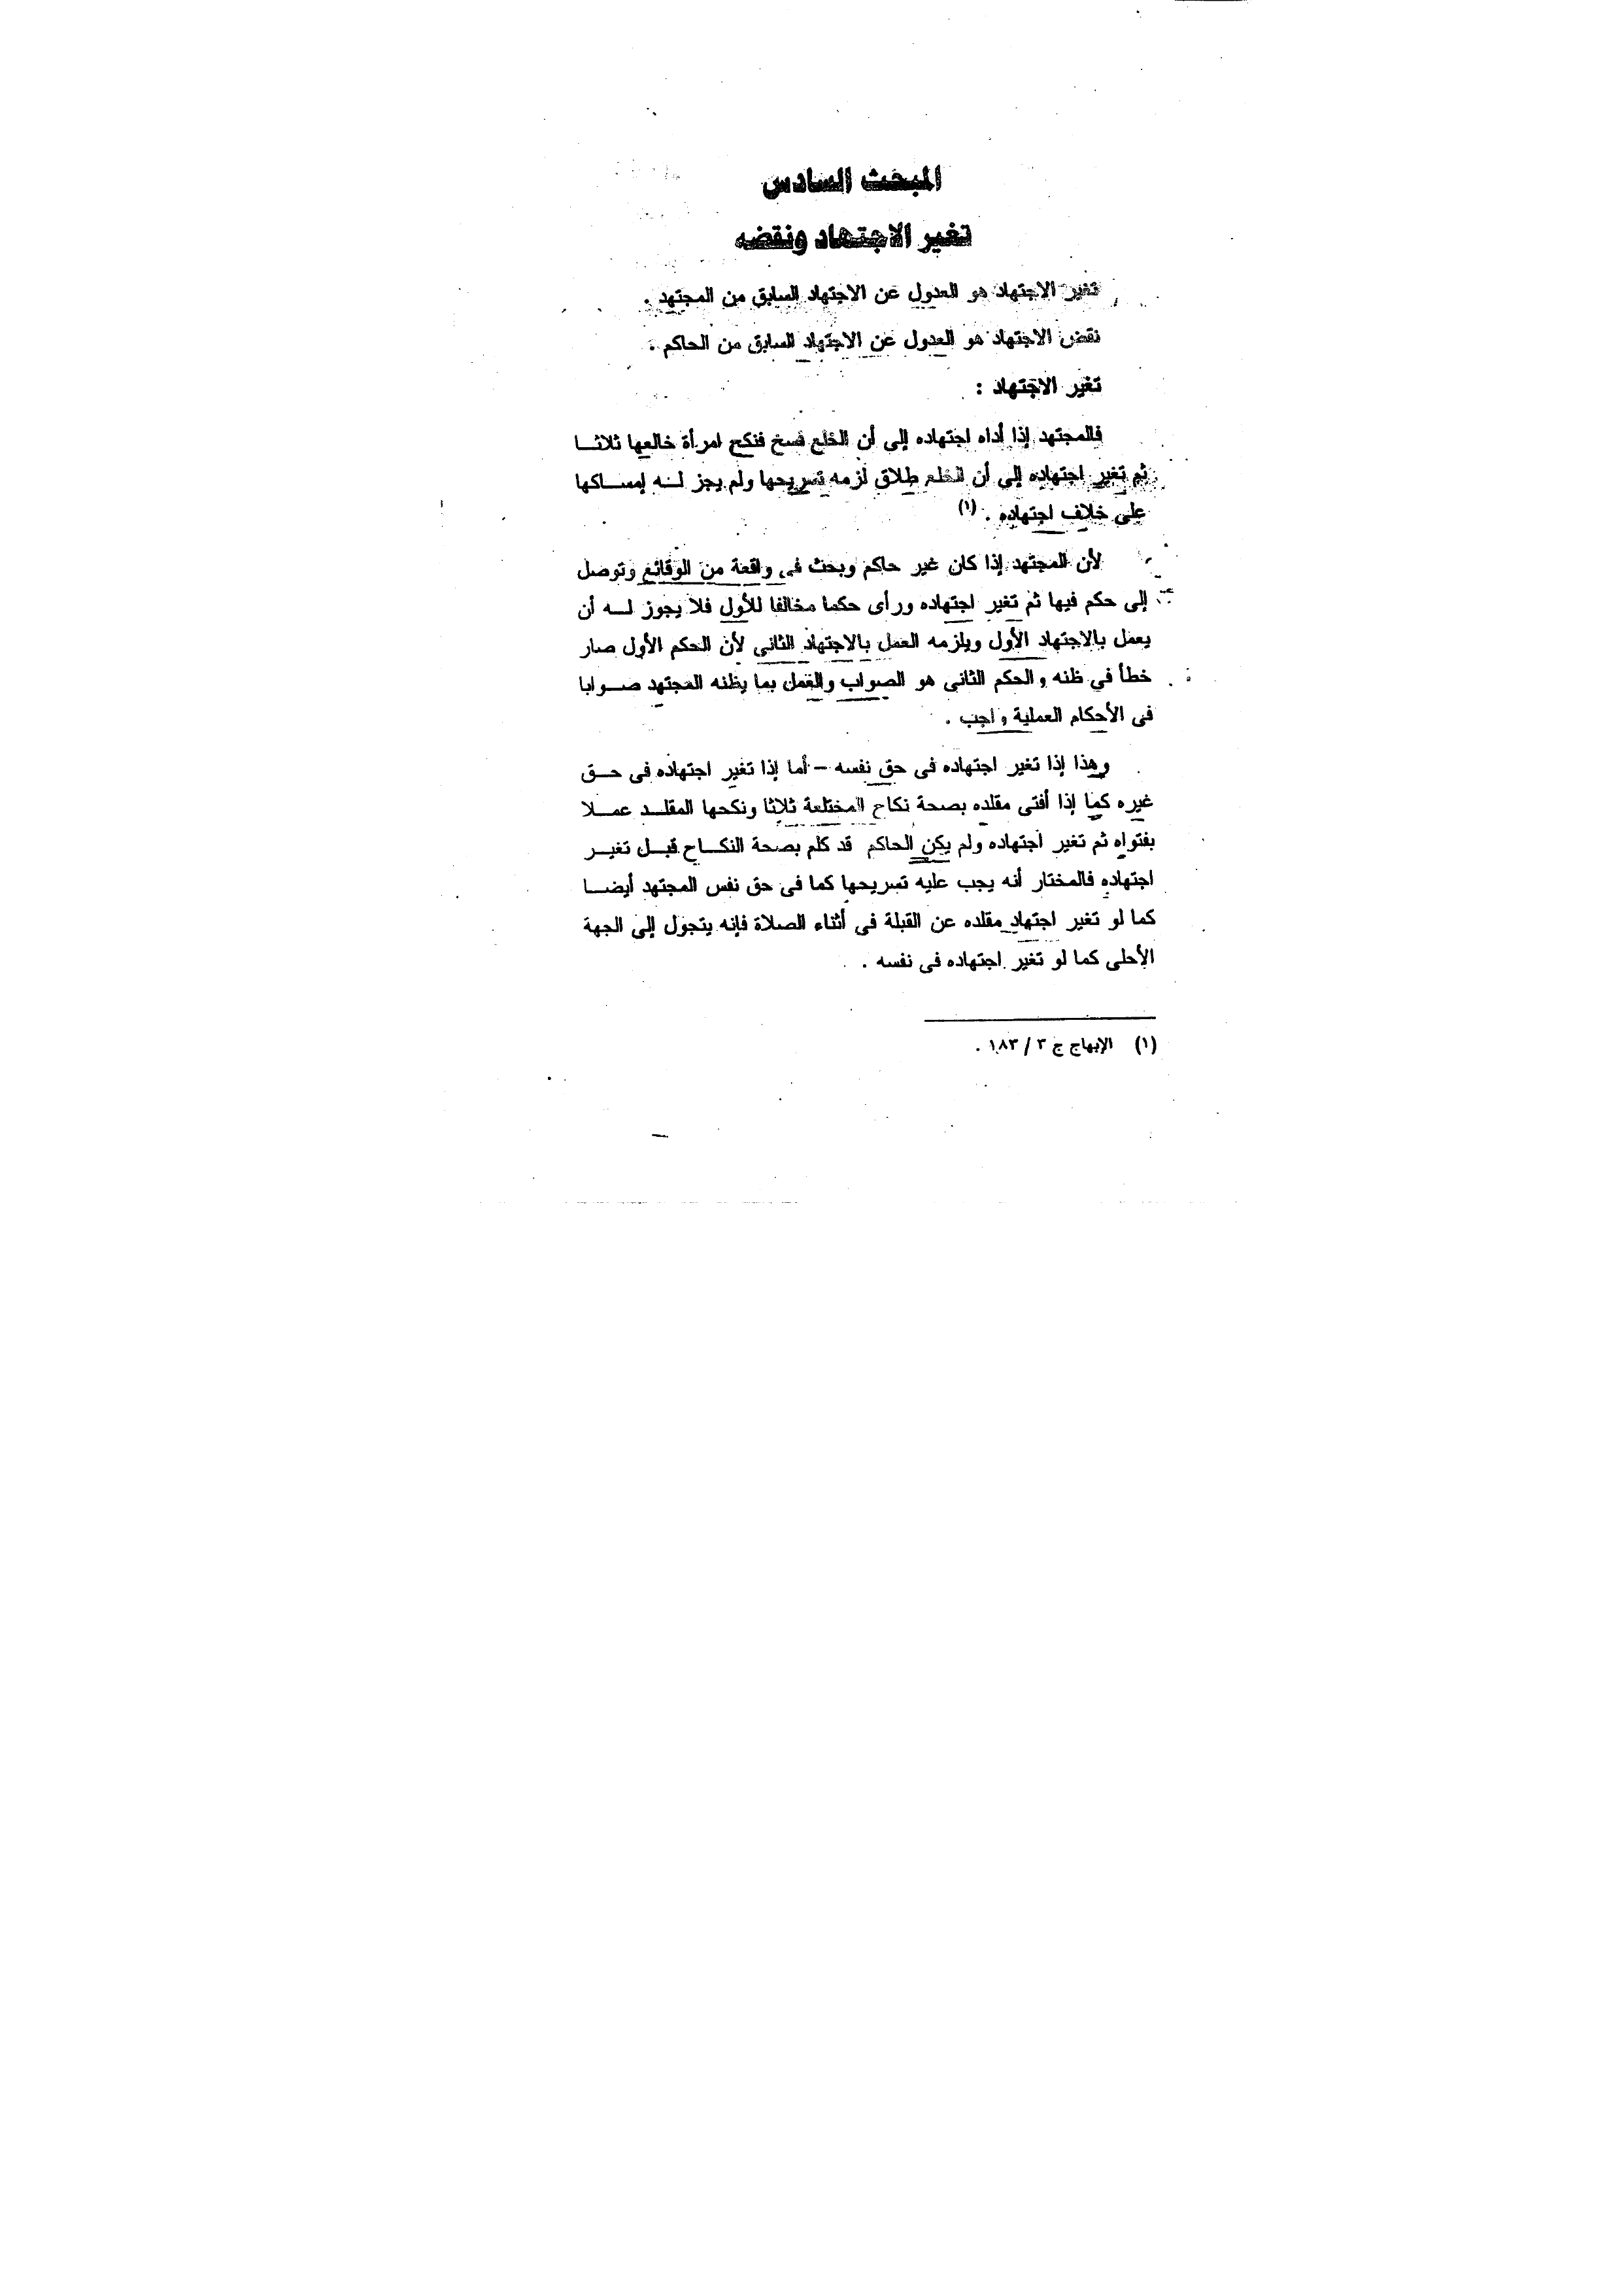 المبحث السادس
تغير الاجتهاد ونقضه
تغير الاجتهاد هو العدول عن الاجتهاد السابق من المجتهد .
نقض الاجتهاد هو العدول عن الاجتهاد السابق من الحاكم .
تغير الاجتهاد :
فالمجتهد إذا أداه اجتهاده إلى أن الخلع فسخ فنكح امرأة خالعها ثلاثـــا
ثم تغير اجتهاده إلى أن الخلع طلاق لزمه تسريحها ولم يجز لـــه إمســـاكها
على خلاف اجتهاده . (١)
لأن المجتهد إذا كان غير حاكم وبحث فى واقعة من الوقائع وتوصل
إلى حكم فيها ثم تغير اجتهاده ورأى حكما مخالفا للأول فلا يجوز لـــه أن
يعمل بالاجتهاد الأول ويلزمه العمل بالاجتهاد الثانى لأن الحكم الأول صار
خطأ فى ظنه والحكم الثانى هو الصواب والعمل بما يظنه المجتهد صـــوابا
فى الأحكام العملية واجب .
وهذا إذا تغير اجتهاده فى حق نفسه – أما إذا تغير اجتهاده فى حـــق
غيره كما إذا أفتى مقلده بصحة نكاح المختلعة ثلاثا ونكحها المقلـــد عمـــلا
بفتواه ثم تغير اجتهاده ولم يكن الحاكم قد كلم بصحة النكـــاح قبـــل تغيـــر
اجتهاده فالمختار أنه يجب عليه تسريحها كما فى حق نفس المجتهد أيضـــا
كما لو تغير اجتهاد مقلده عن القبلة فى أثناء الصلاة فإنه يتحول إلى الجهة
الأحلى كما لو تغير اجتهاده فى نفسه .
(١) الإبهاج ج ٣ / ١٨٣ .